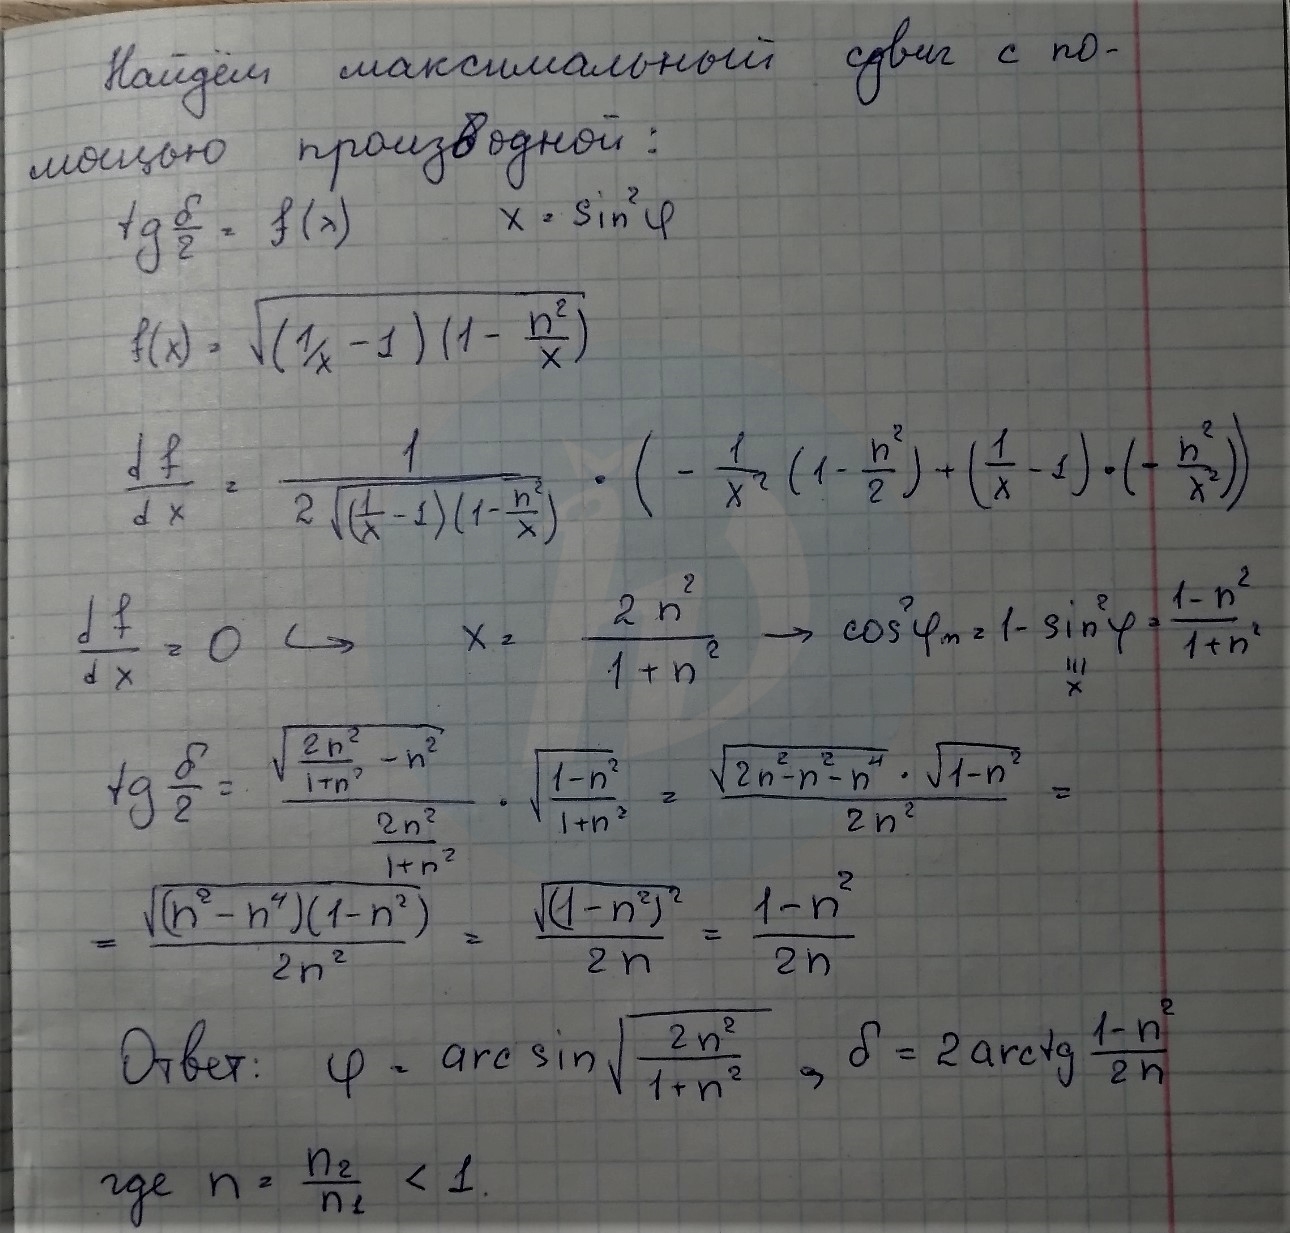 Найдём максимальный сдвиг с по-
мощью производной:
tg δ/2 = f(x) x = sin²φ
f(x) = √((1/x - 1)(1 - n²/x))
df/dx = 1/(2√((1/x - 1)(1 - n²/x))) · (- 1/x² (1 - n²/2) + (1/x - 1)·(- n²/x²))
df/dx = 0 ↪ x = 2n²/(1 + n²) → cos²φₘ = 1 - sin²φ = (1 - n²)/(1 + n²)
x
tg δ/2 = √(2n²/(1+n²) - n²)/(2n²/(1+n²)) · √((1-n²)/(1+n²)) = (√(2n²-n²-n⁴) · √(1-n²))/(2n²) =
= √((n²-n⁴)(1-n²))/(2n²) = √((1-n²)²)/(2n) = (1-n²)/(2n)
Ответ: φ = arcsin√(2n²/(1+n²)), δ = 2arctg (1-n²)/(2n)
где n = n₂/n₁ < 1.